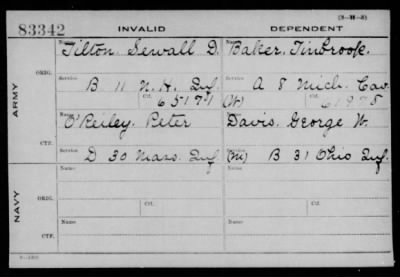 (3-M-3)
83342 INVALID DEPENDENT
Name Name
Tilton Sewall D. Baker, Tinbrook.
ORIG. Service Service
B 11 N.H. Inf. A 8 Mich. Cav.
Ctf. 65171 (W) Ctf. 61975
ARMY
Name Name
O'Reiley, Peter Davis, George W.
CTF. Service Service
D 30 Mass. Inf (M) B 31 Ohio Inf.
Name Name
ORIG. Ctf. Ctf.
NAVY
Name Name
CTF.